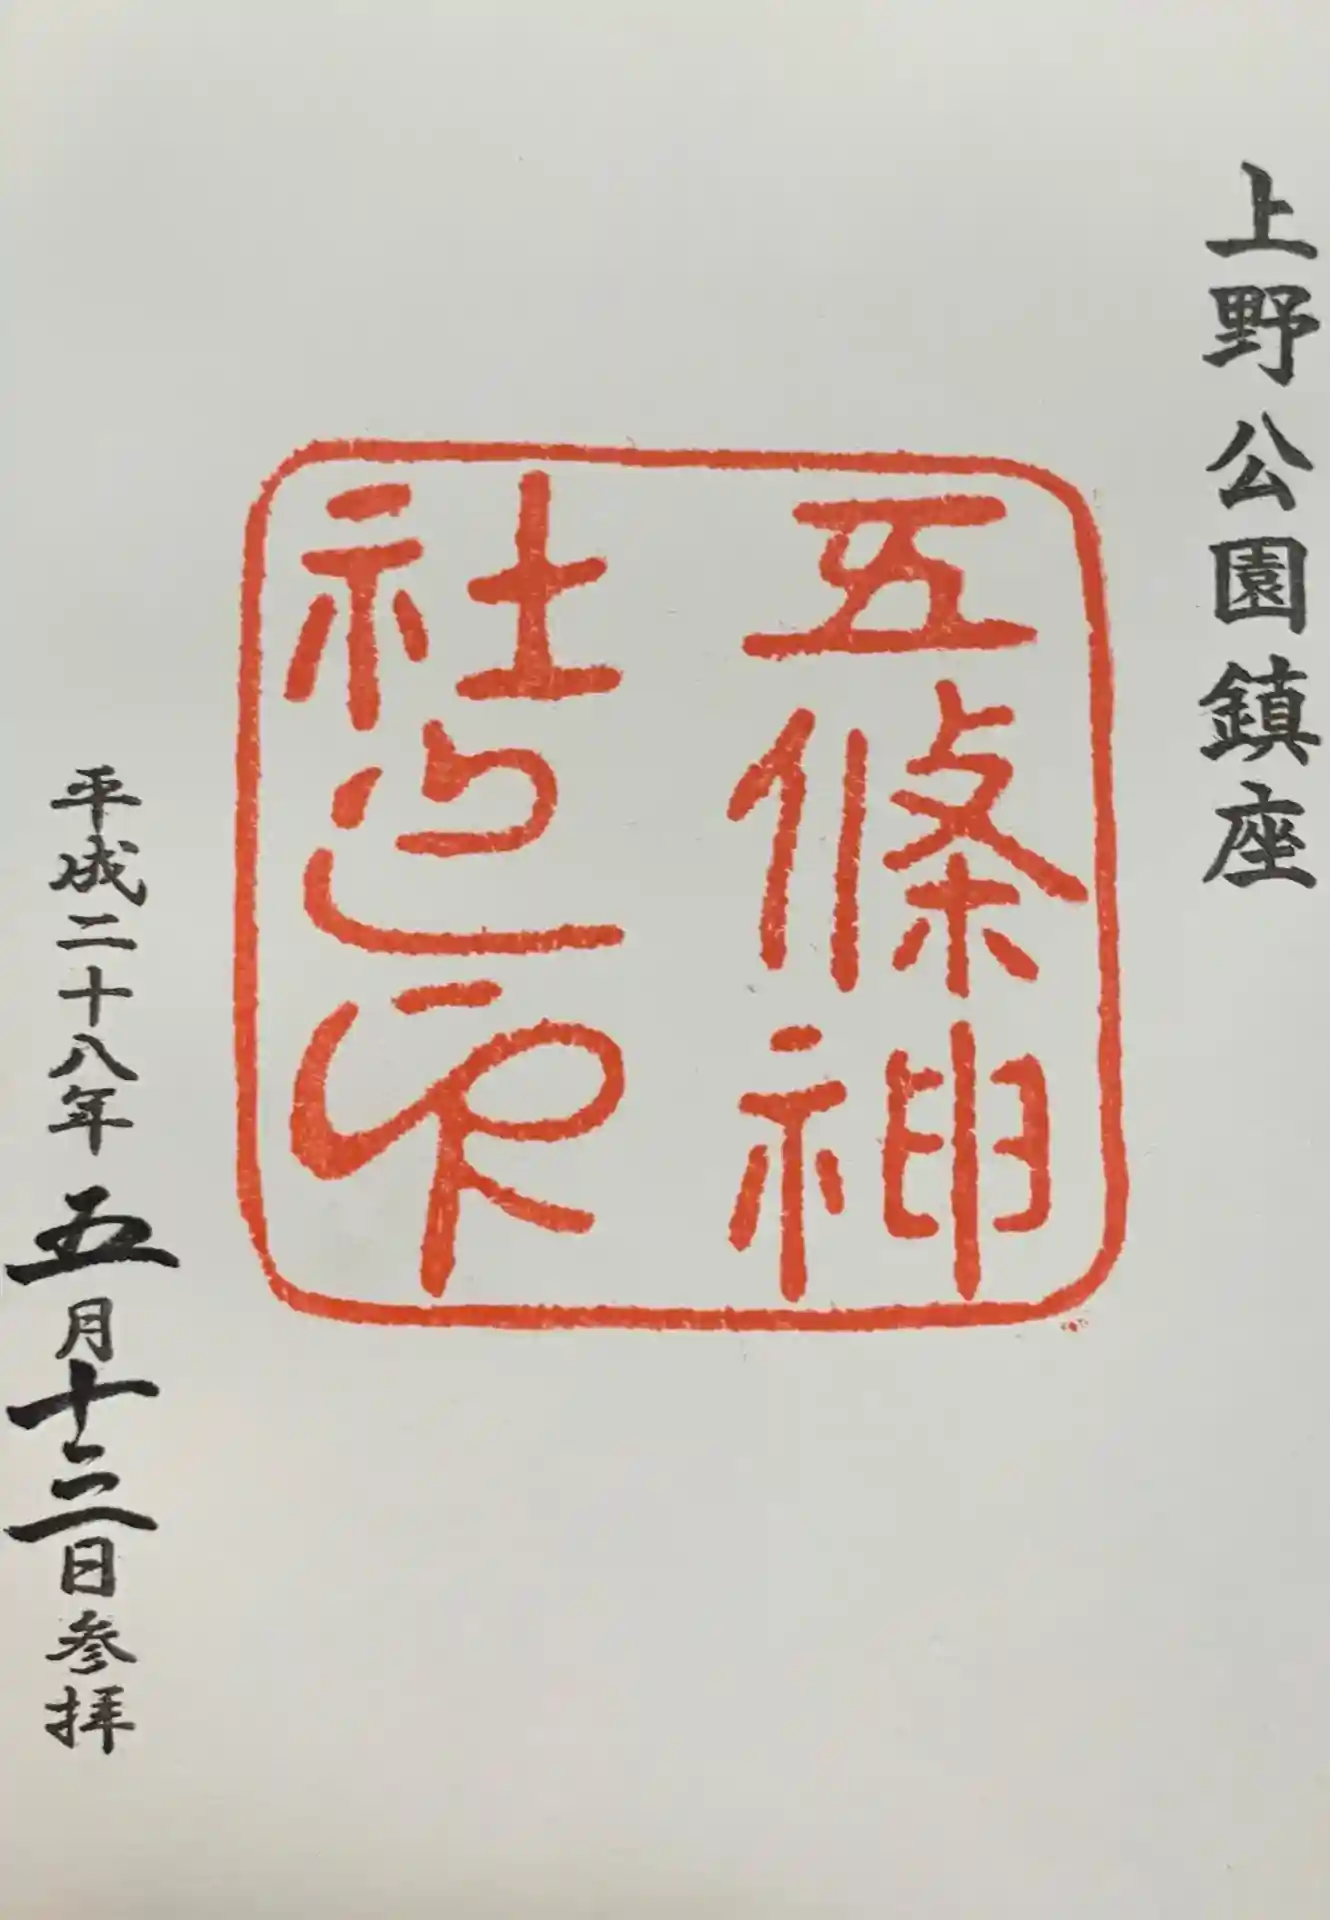 上野公園鎮座
五條神
社之印
平成二十八年五月十二日参拝